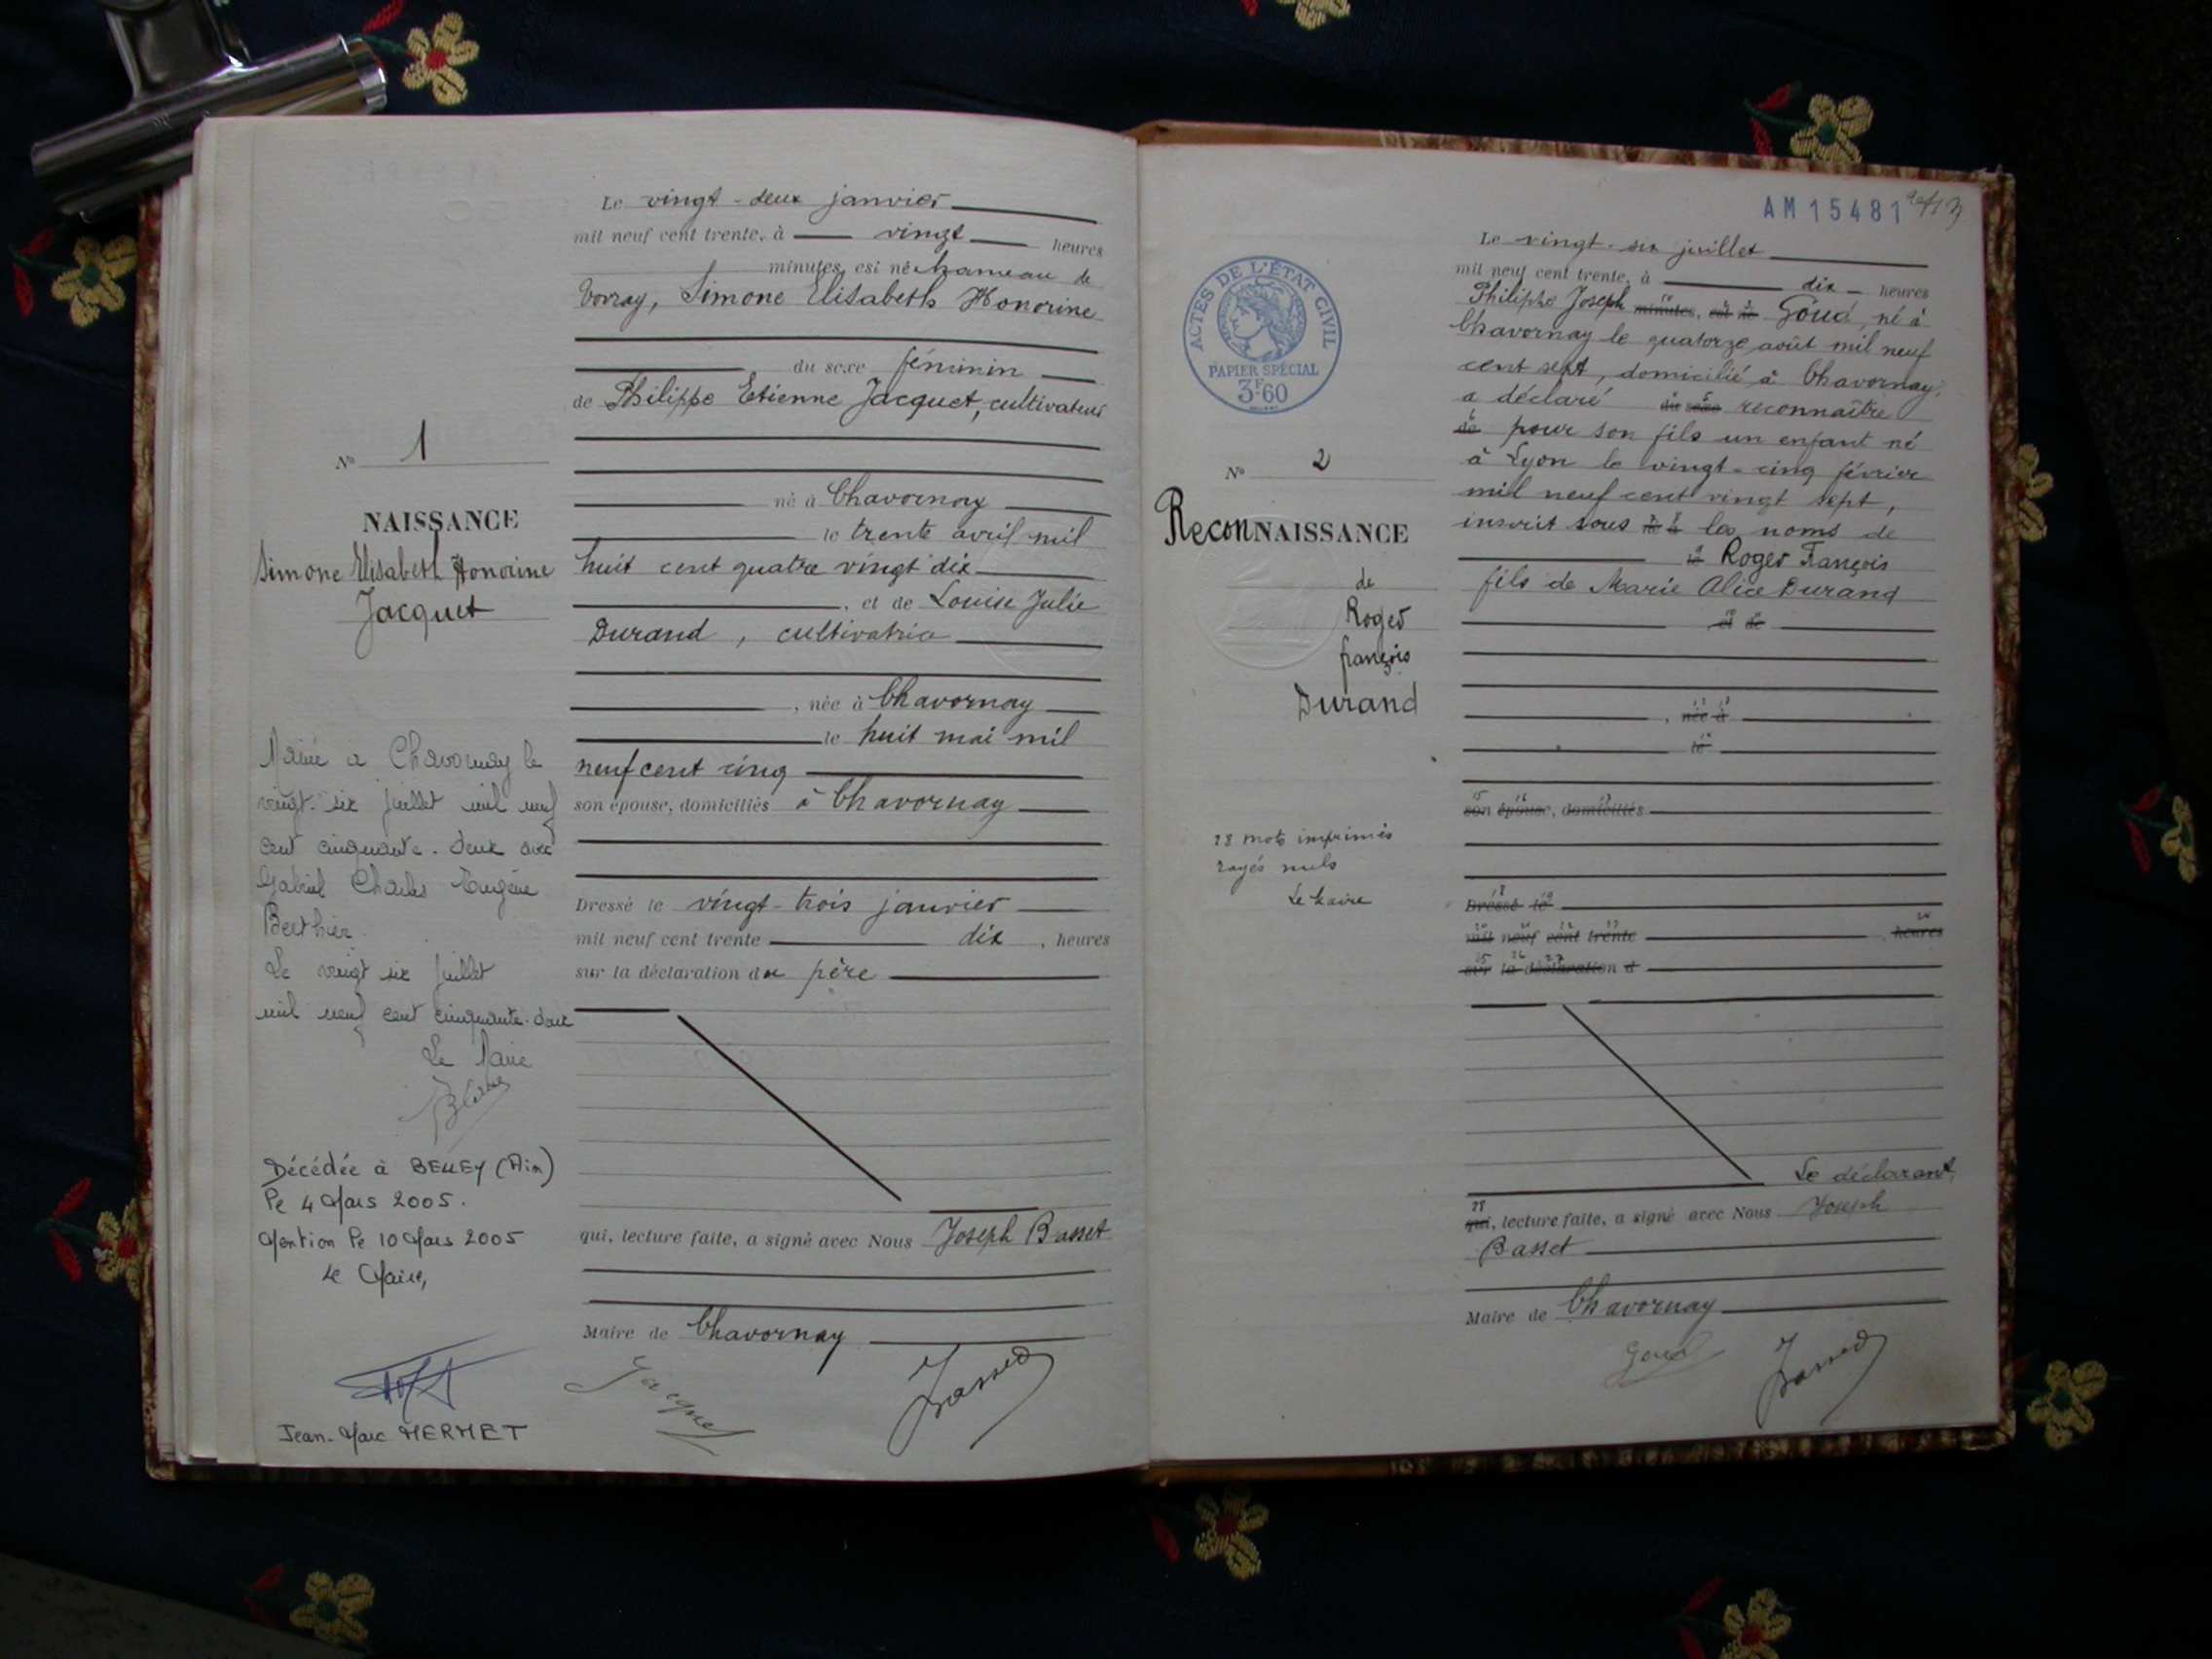 Le vingt-deux janvier
mil neuf cent trente, à vingt heures
minutes, est né hameau de
Vovray, Simone Elisabeth Honorine
du sexe féminin
de Philippe Etienne Jacquet, cultivateur
né à Chavornay
le trente avril mil
huit cent quatre vingt dix
, et de Louise Julie
Durand, cultivatrice
, née à Chavornay
le huit mai mil
neuf cent cinq
son épouse, domiciliés à Chavornay
Dressé le vingt-trois janvier
mil neuf cent trente dix, heures
sur la déclaration du père
qui, lecture faite, a signé avec Nous Joseph Basset
Maire de Chavornay
Jacquet
Basset
N° 1
NAISSANCE
Simone Elisabeth Honorine
Jacquet
Mariée à Chavornay le
vingt-six juillet mil neuf
cent cinquante-deux avec
Gabriel Charles Eugène
Berthier.
Le vingt six juillet
mil neuf cent cinquante-deux
Le Maire
Décédée à BELLEY (Ain)
le 4 Mars 2005.
Mention le 10 Mars 2005
Le Maire,
Jean-Marc HERMET
AM 15481
ACTES DE L'ÉTAT CIVIL
PAPIER SPÉCIAL
3F60
N° 2
ReconNAISSANCE
de
Roger
françois
Durand
28 mots imprimés
rayés nuls
Le Maire
Le vingt-six juillet
mil neuf cent trente, à dix heures
Philippe Joseph minutes, est né Goud, né à
Chavornay le quatorze août mil neuf
cent sept, domicilié à Chavornay,
a déclaré du sexe reconnaître
de pour son fils un enfant né
à Lyon le vingt-cinq février
mil neuf cent vingt sept,
inscrit sous né à les noms de
le Roger François
fils de Marie Alice Durand
et de
, née à
le
son épouse, domiciliés
Dressé le
mil neuf cent trente , heures
sur la déclaration d
Le déclarant,
qui, lecture faite, a signé avec Nous Joseph
Basset
Maire de Chavornay
Goud
Basset